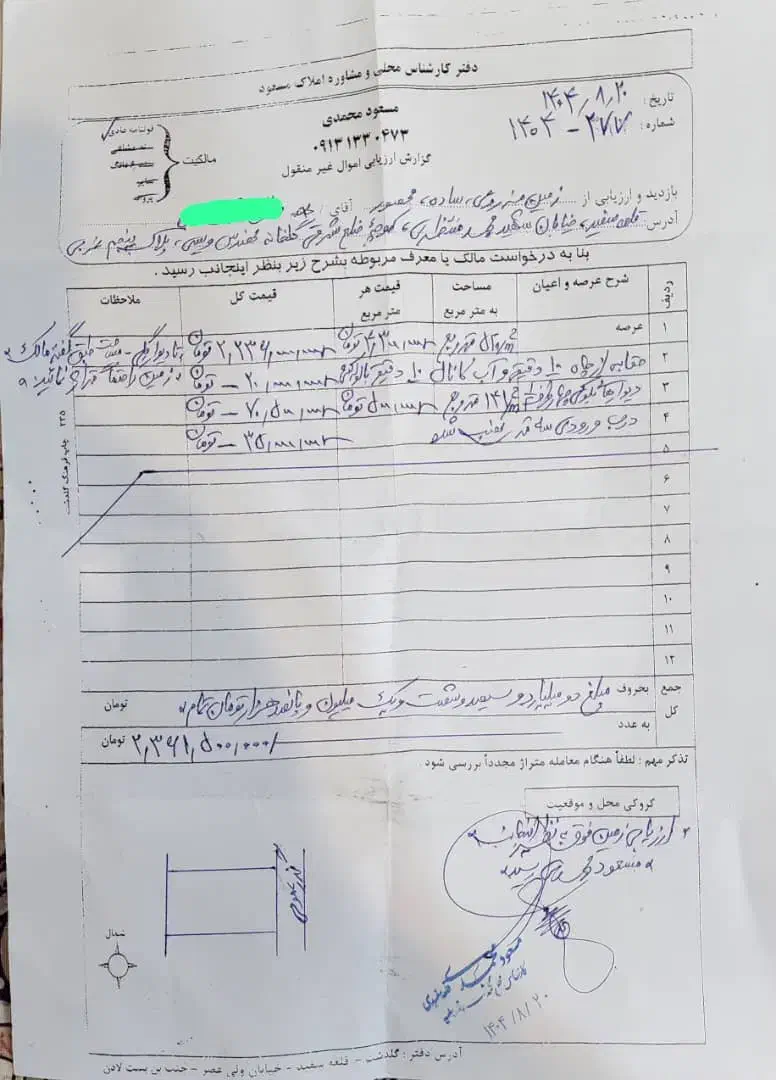 دفتر کارشناس محلی و مشاوره املاک مسعود
تاریخ : ۱۴۰۴/۸/۲۰
شماره : ۲۷۷ - ۱۴۰۴
مسعود محمدی
۰۹۱۳۱۳۳۰۴۷۳
گزارش ارزیابی اموال غیر منقول
مالکیت
قولنامه عادی
سند مشاعی
سایر
بازدید و ارزیابی از زمین مزروعی، ساده، محصور آقای /
آدرس قلعه سفید، خیابان شهید محمد منتظری، کوچه ضلع شرقی گلخانه مهندس ویسی، پلاک پنجم غربی
بنا به درخواست مالک یا معرف مربوطه بشرح زیر بنظر اینجانب رسید .
ردیف شرح عرصه و اعیان مساحت به متر مربع قیمت هر متر مربع قیمت کل ملاحظات
۱ عرصه متر مربع تومان ۲,۲۳۶,۰۰۰,۰۰۰ تومان مساحت طبق گفته مالک
۲ حقابه از چاه ۱۰ دقیقه و آب کانال ۱۰ دقیقه ۲۰,۰۰۰,۰۰۰ - تومان زمین را حتماً متراژ نمائید.
۳ دیوارهای بلوکی چهار طرف ۱۴۱ متر مربع ۵۰۰,۰۰۰ تومان ۷۰,۵۰۰,۰۰۰ - تومان
۴ درب ورودی نصب شده ۳۵,۰۰۰,۰۰۰ - تومان
۵
۶
۷
۸
۹
۱۰
۱۱
۱۲
۲۳۵ چاپ فرهنگ گلدشت
جمع کل بحروف مبلغ دو میلیارد و سیصد و شصت و یک میلیون و پانصد هزار تومان تمام تومان
به عدد ۲,۳۶۱,۵۰۰,۰۰۰/ تومان
تذکر مهم : لطفاً هنگام معامله متراژ مجدداً بررسی شود
کروکی محل و موقعیت
ارزیابی زمین فوق به نظر اینجانب
مسعود محمدی رسید
گذر عمومی
شمال
مسعود محمدی
۱۴۰۴/۸/۲۰
آدرس دفتر : گلدشت - قلعه سفید - خیابان ولی عصر - جنب بن بست لادن